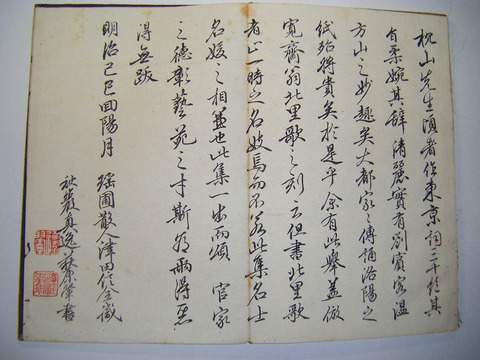 枕山先生頃者作東京詞三十絶其
旨柔婉其辞清麗實有劉賓客温
方山之妙趣矣大都家之傳誦洛陽之
紙殆将貴矣於是乎余有此擧蓋倣
寛齋翁北里歌之刻云但書北里歌
者止一時之名妓焉而不若此集名士
名媛之相並也此集一出而頌 官家
之德彰藝苑之才斯為兩得惡
得無跋
明治己巳陽月 瑶圃散人津田信全識
秋巖真逸書